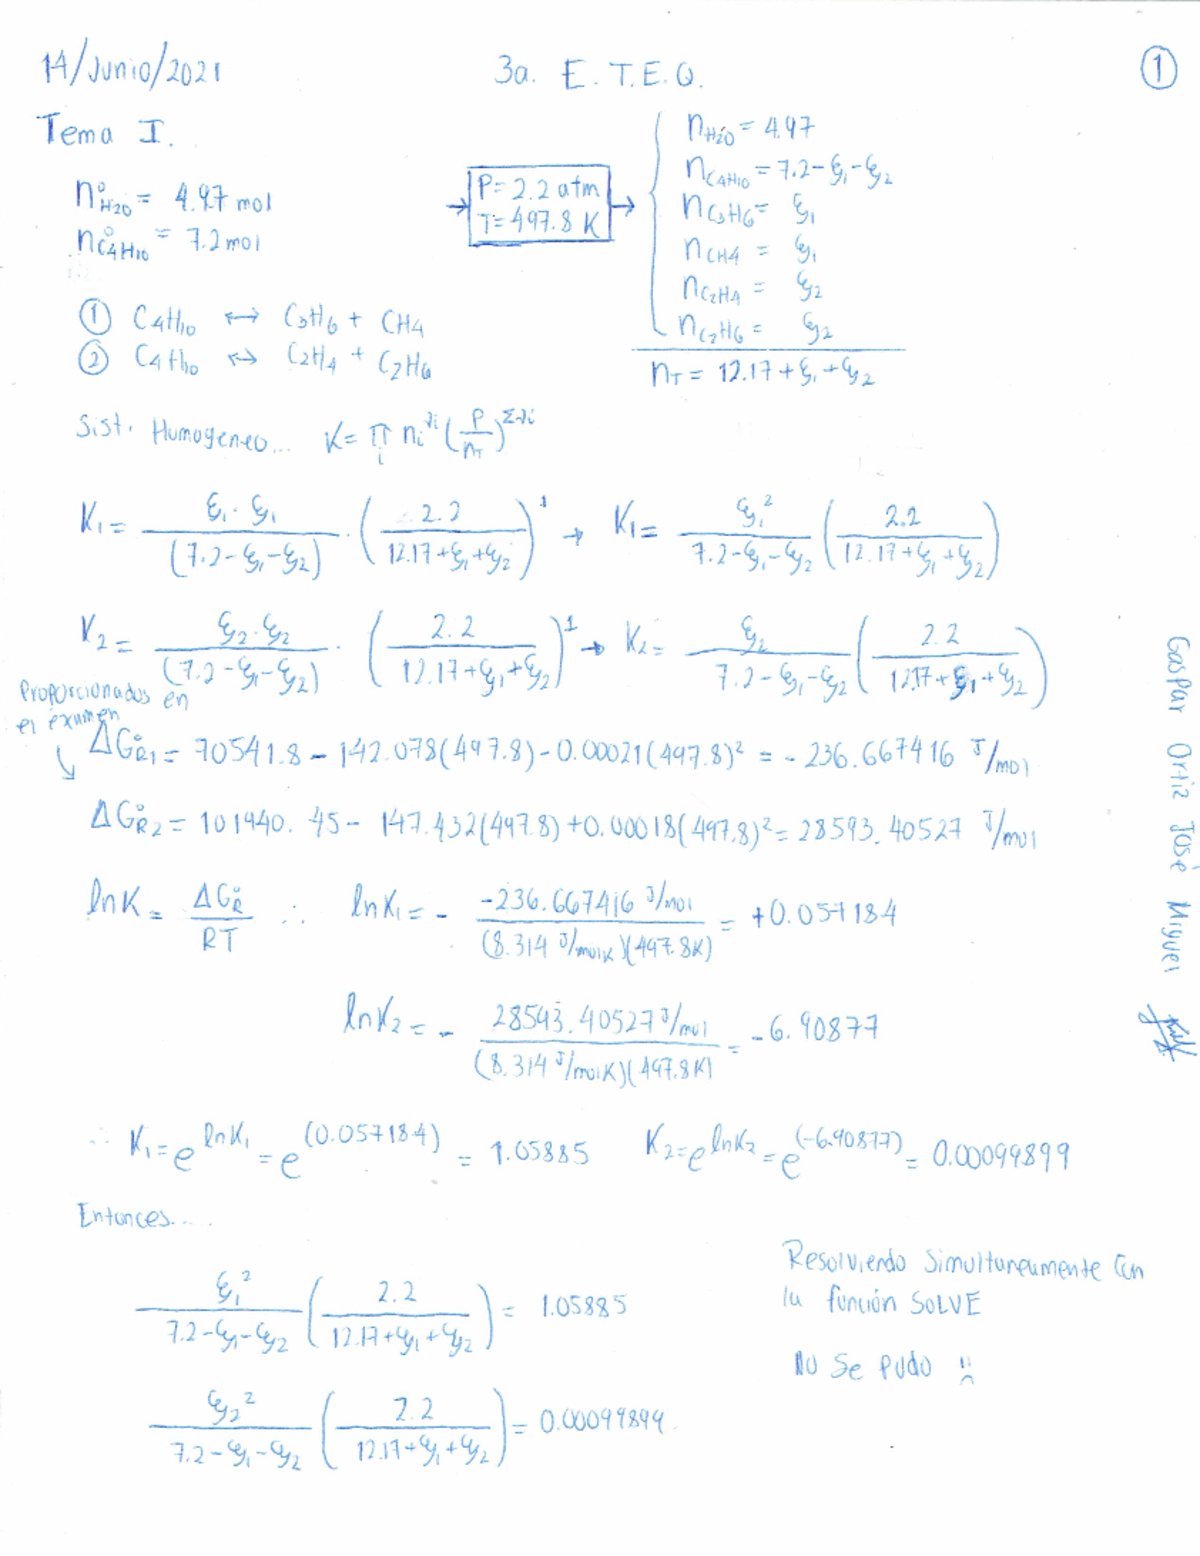 14/Junio/2021
3a. E.T.E.Q.
①
Tema I.
n°H2O = 4.97 mol
n°C4H10 = 7.2 mol
P = 2.2 atm
T = 497.8 K
nH2O = 4.97
nC4H10 = 7.2 - ξ1 - ξ2
nC3H6 = ξ1
nCH4 = ξ1
nC2H4 = ξ2
nC2H6 = ξ2
nT = 12.17 + ξ1 + ξ2
① C4H10 ↔ C3H6 + CH4
② C4H10 ↔ C2H4 + C2H6
Sist. Homogeneo... K = π_i ni^νi (P/nT)^Σνi
K1 = (ξ1 · ξ1)/(7.2 - ξ1 - ξ2) · (2.2/(12.17 + ξ1 + ξ2))^1 → K1 = ξ1²/(7.2 - ξ1 - ξ2) (2.2/(12.17 + ξ1 + ξ2))
K2 = (ξ2 · ξ2)/(7.2 - ξ1 - ξ2) · (2.2/(12.17 + ξ1 + ξ2))^1 → K2 = ξ2/(7.2 - ξ1 - ξ2) (2.2/(12.17 + ξ1 + ξ2))
Proporcionados en
el examen
ΔG°R1 = 70541.8 - 142.078(497.8) - 0.00021(497.8)² = - 236.667416 J/mol
ΔG°R2 = 101940.45 - 147.432(497.8) + 0.00018(497.8)² = 28593.40527 J/mol
lnK = ΔG°R/RT ∴ lnK1 = - (-236.667416 J/mol)/((8.314 J/molK)(497.8K)) = +0.057184
lnK2 = - (28543.40527 J/mol)/((8.314 J/molK)(497.8K)) = -6.90877
∴ K1 = e^lnK1 = e^(0.057184) = 1.05885 K2 = e^lnK2 = e^(-6.90877) = 0.00099899
Entonces....
ξ1²/(7.2 - ξ1 - ξ2) (2.2/(12.17 + ξ1 + ξ2)) = 1.05885
ξ2²/(7.2 - ξ1 - ξ2) (2.2/(12.17 + ξ1 + ξ2)) = 0.00099899
Resolviendo Simultaneamente con
la función SOLVE
No se pudo :(
Gaspar Ortiz José Miguel